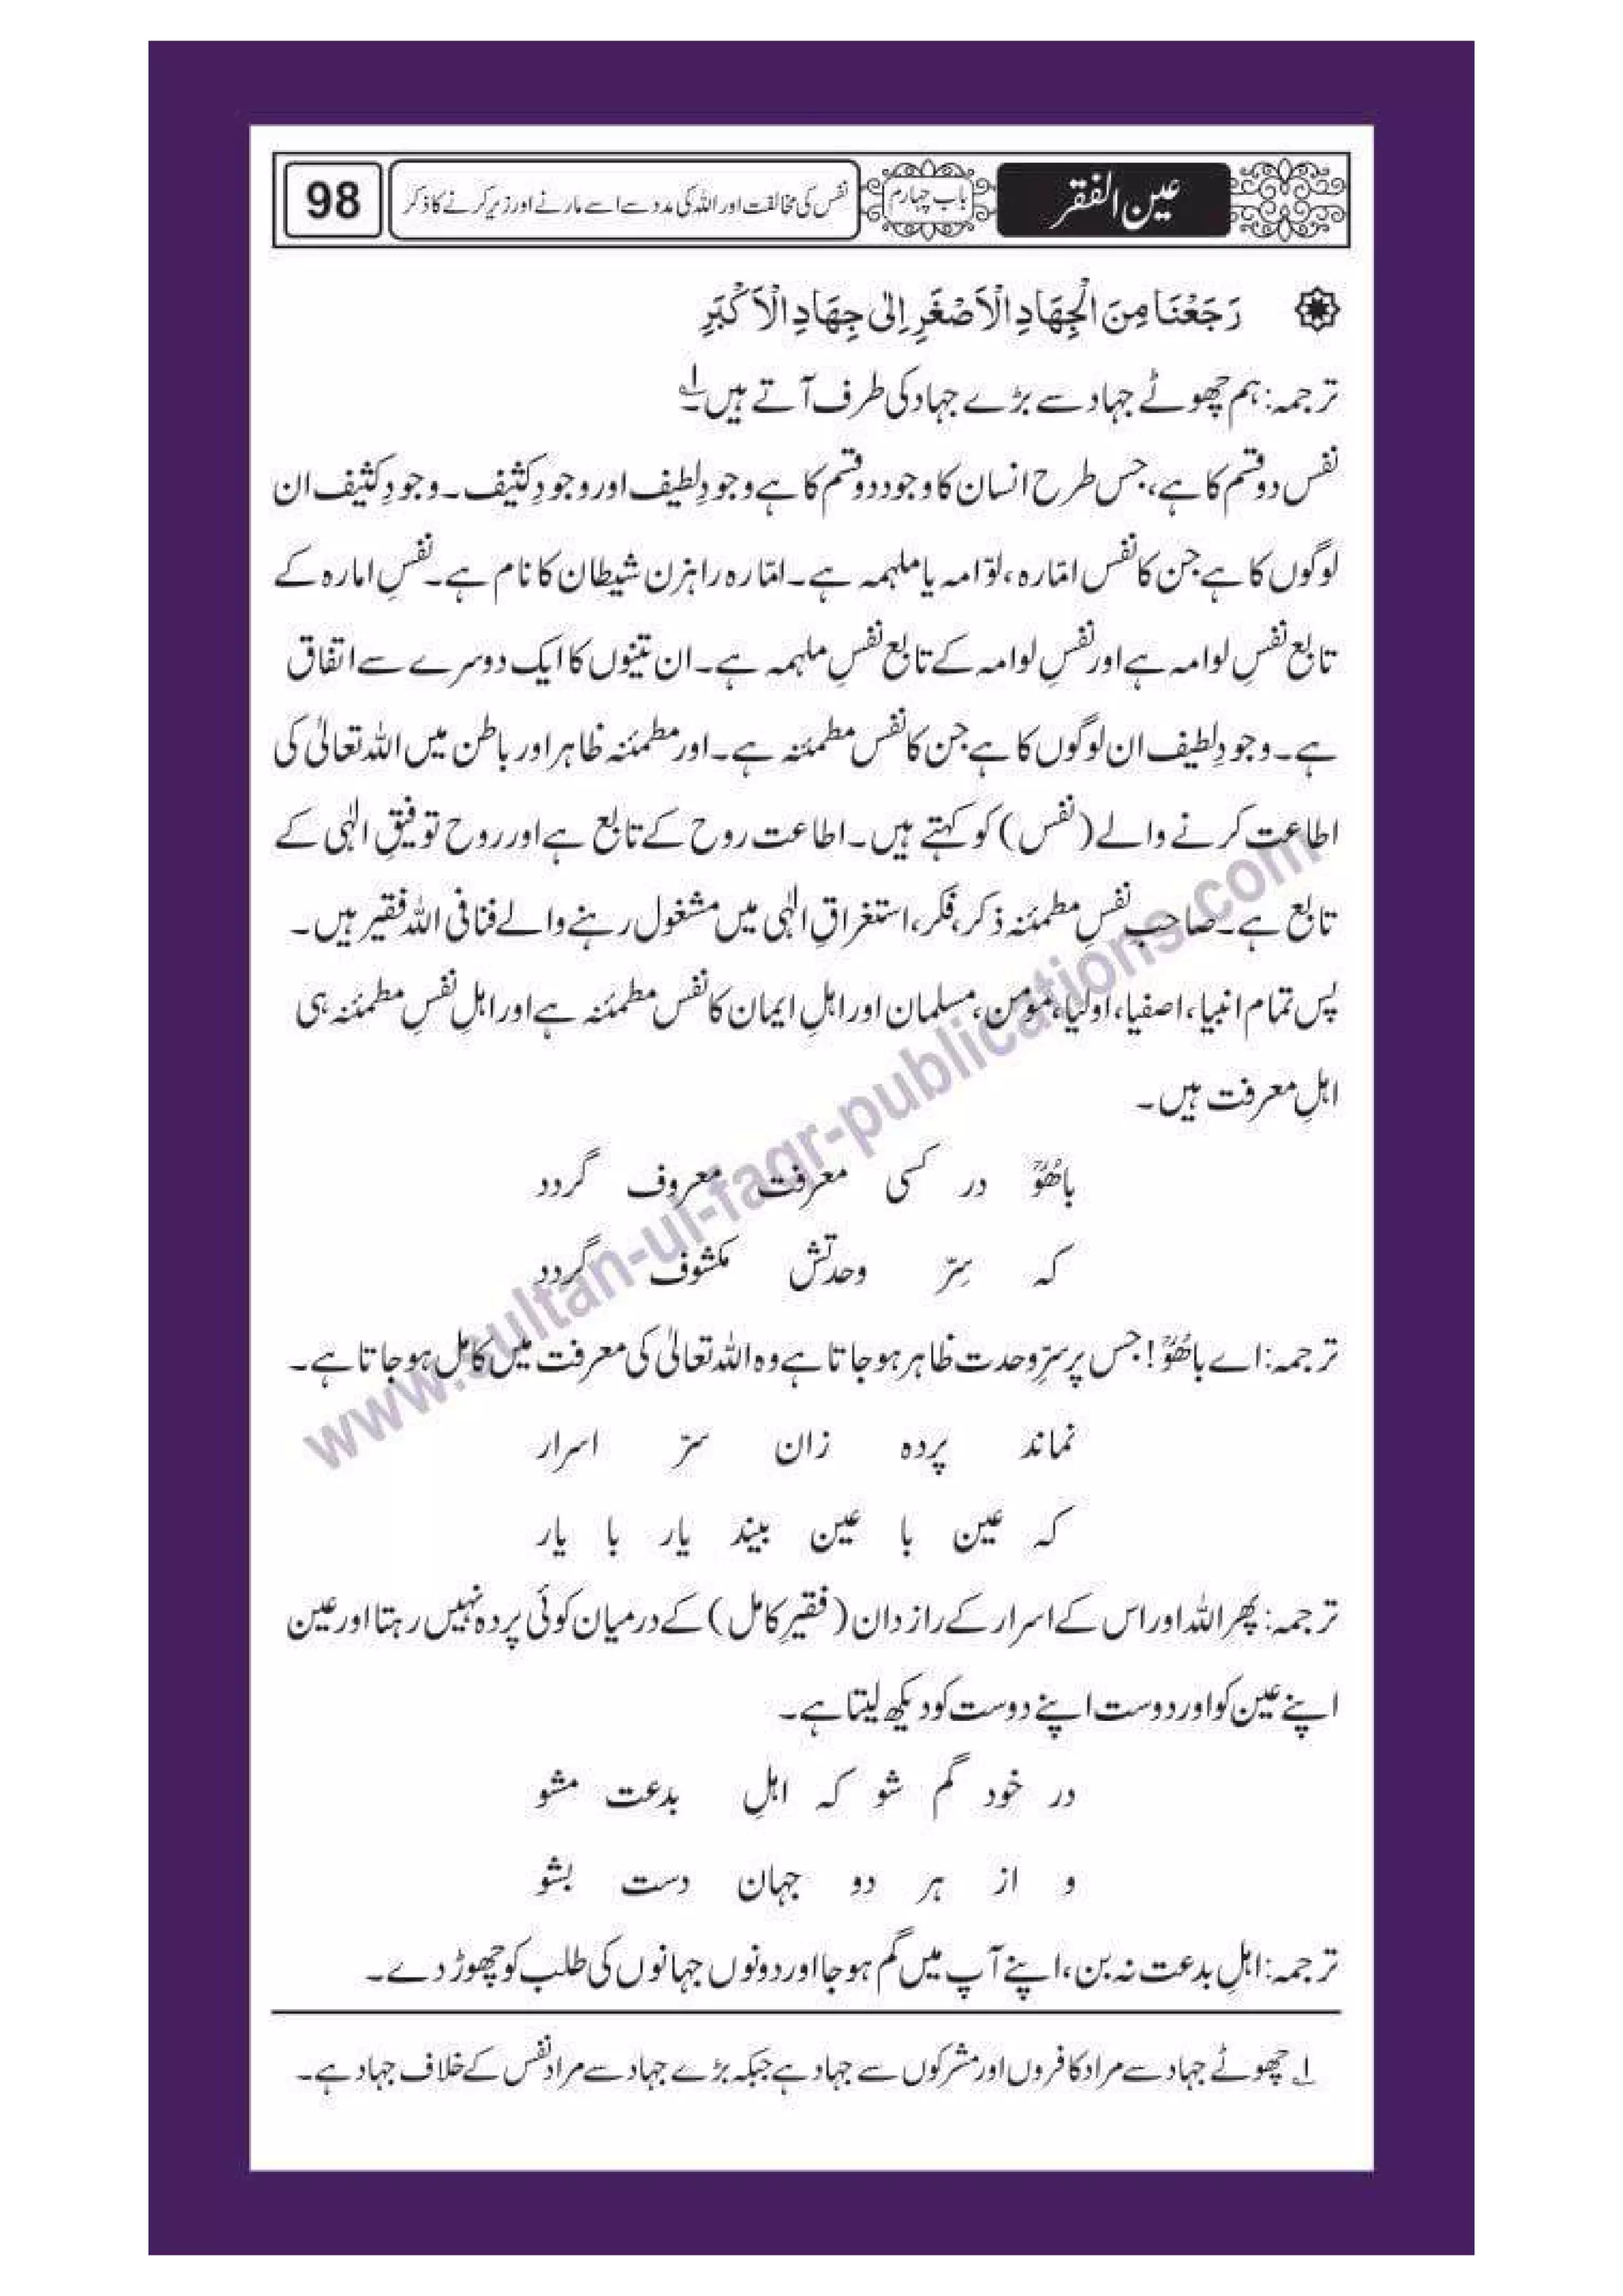 عین الفقر
باب چہارم
نفس کی مخالفت اور اللہ کی مدد سے اسے مارنے اور زیر کرنے کا ذکر
98
رَجَعْنَا مِنَ الْجِهَادِ الْاَصْغَرِ اِلٰى جِهَادِ الْاَكْبَرِ
ترجمہ: ہم چھوٹے جہاد سے بڑے جہاد کی طرف آتے ہیں۔۱
نفس دو قسم کا ہے، جس طرح انسان کا وجود دو قسم کا ہے وجودِ لطیف اور وجودِ کثیف۔ وجودِ کثیف ان
لوگوں کا ہے جن کا نفس امّارہ، لوّامہ یا ملہمہ ہے۔ امّارہ راہزن شیطان کا نام ہے۔ نفسِ امارہ کے
تابع نفسِ لوامہ ہے اور نفسِ لوامہ کے تابع نفسِ ملہمہ ہے۔ ان تینوں کا ایک دوسرے سے اتفاق
ہے۔ وجودِ لطیف ان لوگوں کا ہے جن کا نفس مطمئنہ ہے۔ اور مطمئنہ ظاہر اور باطن میں اللہ تعالیٰ کی
اطاعت کرنے والے (نفس) کو کہتے ہیں۔ اطاعت روح کے تابع ہے اور روح توفیقِ الٰہی کے
تابع ہے۔ صاحبِ نفسِ مطمئنہ ذکر، فکر، استغراقِ الٰہی میں مشغول رہنے والے فنا فی اللہ فقیر ہیں۔
پس تمام انبیا، اصفیا، اولیا، مومن، مسلمان اور اہلِ ایمان کا نفس مطمئنہ ہے اور اہلِ نفسِ مطمئنہ ہی
اہلِ معرفت ہیں۔
باھُوؒ در کسی معرفت معروف گردد
کہ سِرّ وحدتش مکشوف گردد
ترجمہ: اے باھُوؒ! جس پر سرِّ وحدت ظاہر ہو جاتا ہے وہ اللہ تعالیٰ کی معرفت میں کامل ہو جاتا ہے۔
نماند پردہ زان سرّ اسرار
کہ عین با عین بیند یار با یار
ترجمہ: پھر اللہ اور اس کے اسرار کے رازدان (فقیرِ کامل) کے درمیان کوئی پردہ نہیں رہتا اور عین
اپنے عین کو اور دوست اپنے دوست کو دیکھ لیتا ہے۔
در خود گم شو کہ اہلِ بدعت مشو
و از ہر دو جہان دست بشو
ترجمہ: اہلِ بدعت نہ بن، اپنے آپ میں گم ہو جا اور دونوں جہانوں کی طلب کو چھوڑ دے۔
۱ چھوٹے جہاد سے مراد کافروں اور مشرکوں سے جہاد ہے جبکہ بڑے جہاد سے مراد نفس کے خلاف جہاد ہے۔
www.sultan-ul-faqr-publications.com